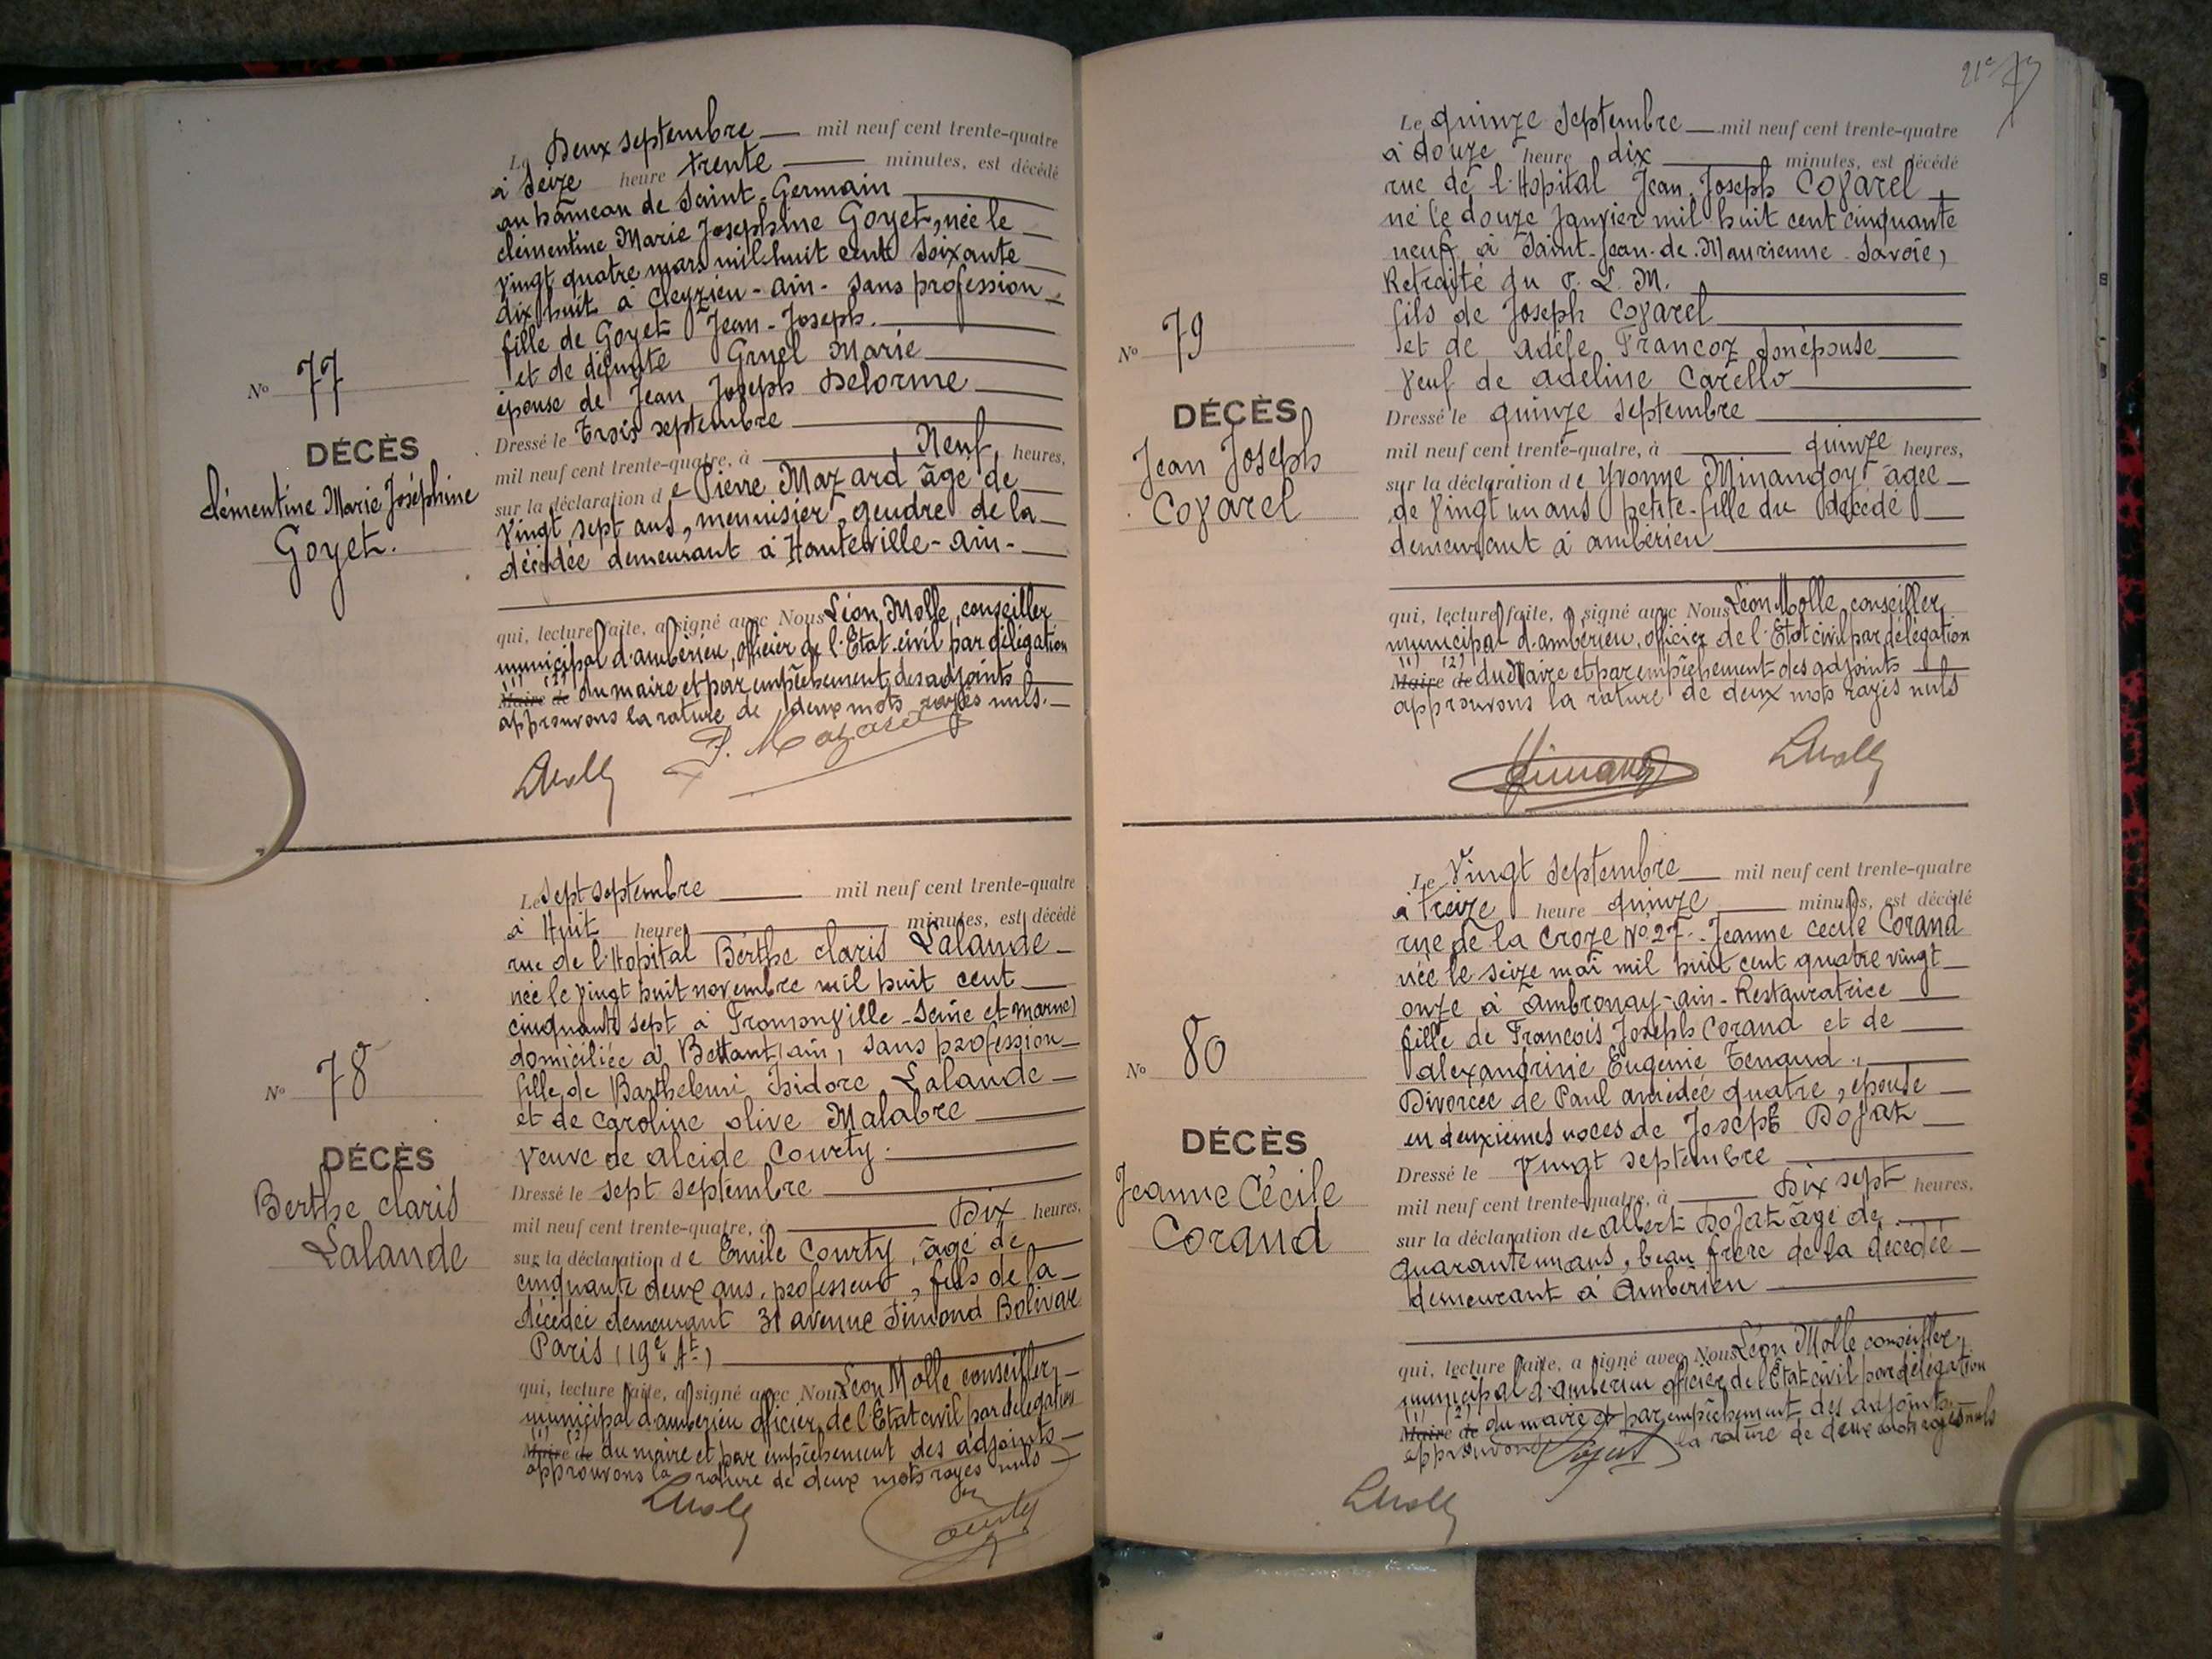 Le Deux septembre mil neuf cent trente-quatre
à Seize heure trente minutes, est décédé
au hameau de Saint-Germain
Clémentine Marie Joséphine Goyet, née le
vingt quatre mars mil huit cent soixante
dix huit à Cleyzieu - ain - sans profession
fille de Goyet Jean-Joseph.
et de défunte Gruel Marie
épouse de Jean Joseph Delorme
Dressé le Trois septembre
mil neuf cent trente-quatre, à Neuf heures,
sur la déclaration de Pierre Mazard âgé de
vingt sept ans, menuisier, gendre de la
décédée demeurant à Hauteville - ain -
qui, lecture faite, a signé avec Nous Léon Molle, conseiller
municipal d'ambérieu, officier de l'Etat-civil par délégation
(1) (2)
Maire de du maire et par empêchement des adjoints
approuvons la rature de deux mots rayés nuls.
P. Mazard
LMolle
No 77
DÉCÈS
Clémentine Marie Joséphine
Goyet.
Le sept septembre mil neuf cent trente-quatre
à Huit heure minutes, est décédé
rue de l'Hopital Berthe claris Lalande
née le vingt huit novembre mil huit cent
cinquante sept à Fromonville - Seine et marne)
domiciliée à Bettant, ain, sans profession
fille de Barthelemi Isidore Lalande
et de Caroline olive Malabre
veuve de alcide Courty.
Dressé le sept septembre
mil neuf cent trente-quatre, à Dix heures,
sur la déclaration de Emile Courty, âgé de
cinquante deux ans, professeur, fils de la
décédée demeurant 31 avenue Simond Bolivar
Paris (19e At)
qui, lecture faite, a signé avec Nous Léon Molle conseiller
municipal d'ambérieu officier de l'Etat civil par délégation
(1) (2)
Maire de du maire et par empêchement des adjoints
approuvons la rature de deux mots rayés nuls
LMolle
Courty
No 78
DÉCÈS
Berthe claris
Lalande
Le quinze septembre mil neuf cent trente-quatre
à douze heure dix minutes, est décédé
rue de l'Hopital Jean Joseph Covarel
né le douze janvier mil huit cent cinquante
neuf à Saint-Jean-de-Maurienne - Savoie,
Retraité du P. L. M.
fils de Joseph Covarel
et de adèle Francoz son épouse
veuf de adeline Carello
Dressé le quinze septembre
mil neuf cent trente-quatre, à quinze heures,
sur la déclaration de Yvonne Minangoy âgée
de vingt un ans petite-fille du décédé
demeurant à ambérieu
qui, lecture faite, a signé avec Nous Léon Molle, conseiller
municipal d'ambérieu, officier de l'Etat civil par délégation
(1) (2)
Maire de du Maire et par empêchement des adjoints
approuvons la rature de deux mots rayés nuls
LMolle
No 79
DÉCÈS
Jean Joseph
Covarel
Le Vingt septembre mil neuf cent trente-quatre
à Treize heure quinze minutes, est décédé
rue de la Croze No 27. Jeanne Cécile Corand
née le seize mai mil huit cent quatre vingt
onze à ambronay - ain - Restauratrice
fille de François Joseph Corand et de
alexandrine Eugénie Tenand.
Divorcée de Paul amédée quatre, épouse
en deuxièmes noces de Joseph Dojat
Dressé le vingt septembre
mil neuf cent trente-quatre, à Dix sept heures,
sur la déclaration de albert Dojat âgé de
quarante un ans, beau frère de la décédée
demeurant à Ambérieu
qui, lecture faite, a signé avec Nous Léon Molle conseiller
municipal d'ambérieu officier de l'Etat civil par délégation
(1) (2)
Maire de du maire et par empêchement des adjoints
approuvons la rature de deux mots rayés nuls
Dojat
LMolle
No 80
DÉCÈS
Jeanne Cécile
Corand